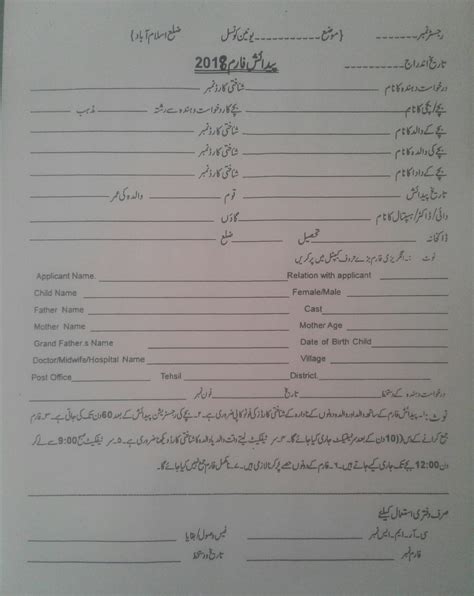 رجسٹر نمبر ۔۔۔۔۔۔۔۔ {موضع ۔۔۔۔۔۔۔۔۔۔ یونین کونسل ضلع اسلام آباد}
تاریخ اندراج ۔۔۔۔۔۔۔۔ پیدائش فارم 2018
درخواست دہندہ کا نام ________ شناختی کارڈ نمبر ________
بچے / بچی کا نام ________ بچے کا درخواست دہندہ سے رشتہ ________ مذہب ________
بچے کے والد کا نام ________ شناختی کارڈ نمبر ________
بچے کی والدہ کا نام ________ شناختی کارڈ نمبر ________
بچے کے دادا کا نام ________ شناختی کارڈ نمبر ________
تاریخ پیدائش ________ قوم ________ والدہ کی عمر ________
دائی / ڈاکٹر / ہسپتال کا نام ________ گاؤں ________
ڈاکخانہ ________ تحصیل ________ ضلع ________
نوٹ :۔ انگریزی فارم بڑے حروف کیپیٹل میں پر کریں
Applicant Name. ________ Relation with applicant ________
Child Name ________ Female/Male ________
Father Name ________ Cast ________
Mother Name ________ Mother Age ________
Grand Father,s Name ________ Date of Birth Child ________
Doctor/Midwife/Hospital Name ________ Village ________
Post Office ________ Tehsil ________ District. ________
درخواست دہندہ کے دستخط ________ تاریخ ________ فون نمبر ________
نوٹ :۔ 1۔ پیدائش فارم کے ساتھ والد اور والدہ دونوں کے نادرا کے شناختی کارڈز کی فوٹو کاپی ضروری ہے۔ 2۔ بچے کی رجسٹریشن پیدائش کے بعد 60 دن تک کی جاتی ہے۔ 3۔ فارم
جمع کرانے کے (10) دن کے بعد سرٹیفکیٹ جاری کیا جائے گا۔ سرٹیفکیٹ لیتے وقت والد یا والدہ کا شناختی کارڈ دیکھانا ضروری ہے۔ 5۔ سرٹیفکیٹ صبح 9:00 سے لے کر
12:00 بجے تک جاری کیے جاتے ہیں۔ فارم کے دونوں حصے پر کرنا لازمی ہیں۔ نامکمل فارم جمع نہیں کیا جائے گا۔
صرف دفتری استعمال کیلئے
سی۔آر۔ایم۔ایس نمبر ________ فیس وصول / بقایا ________
فارم نمبر ________ تاریخ و دستخط ________